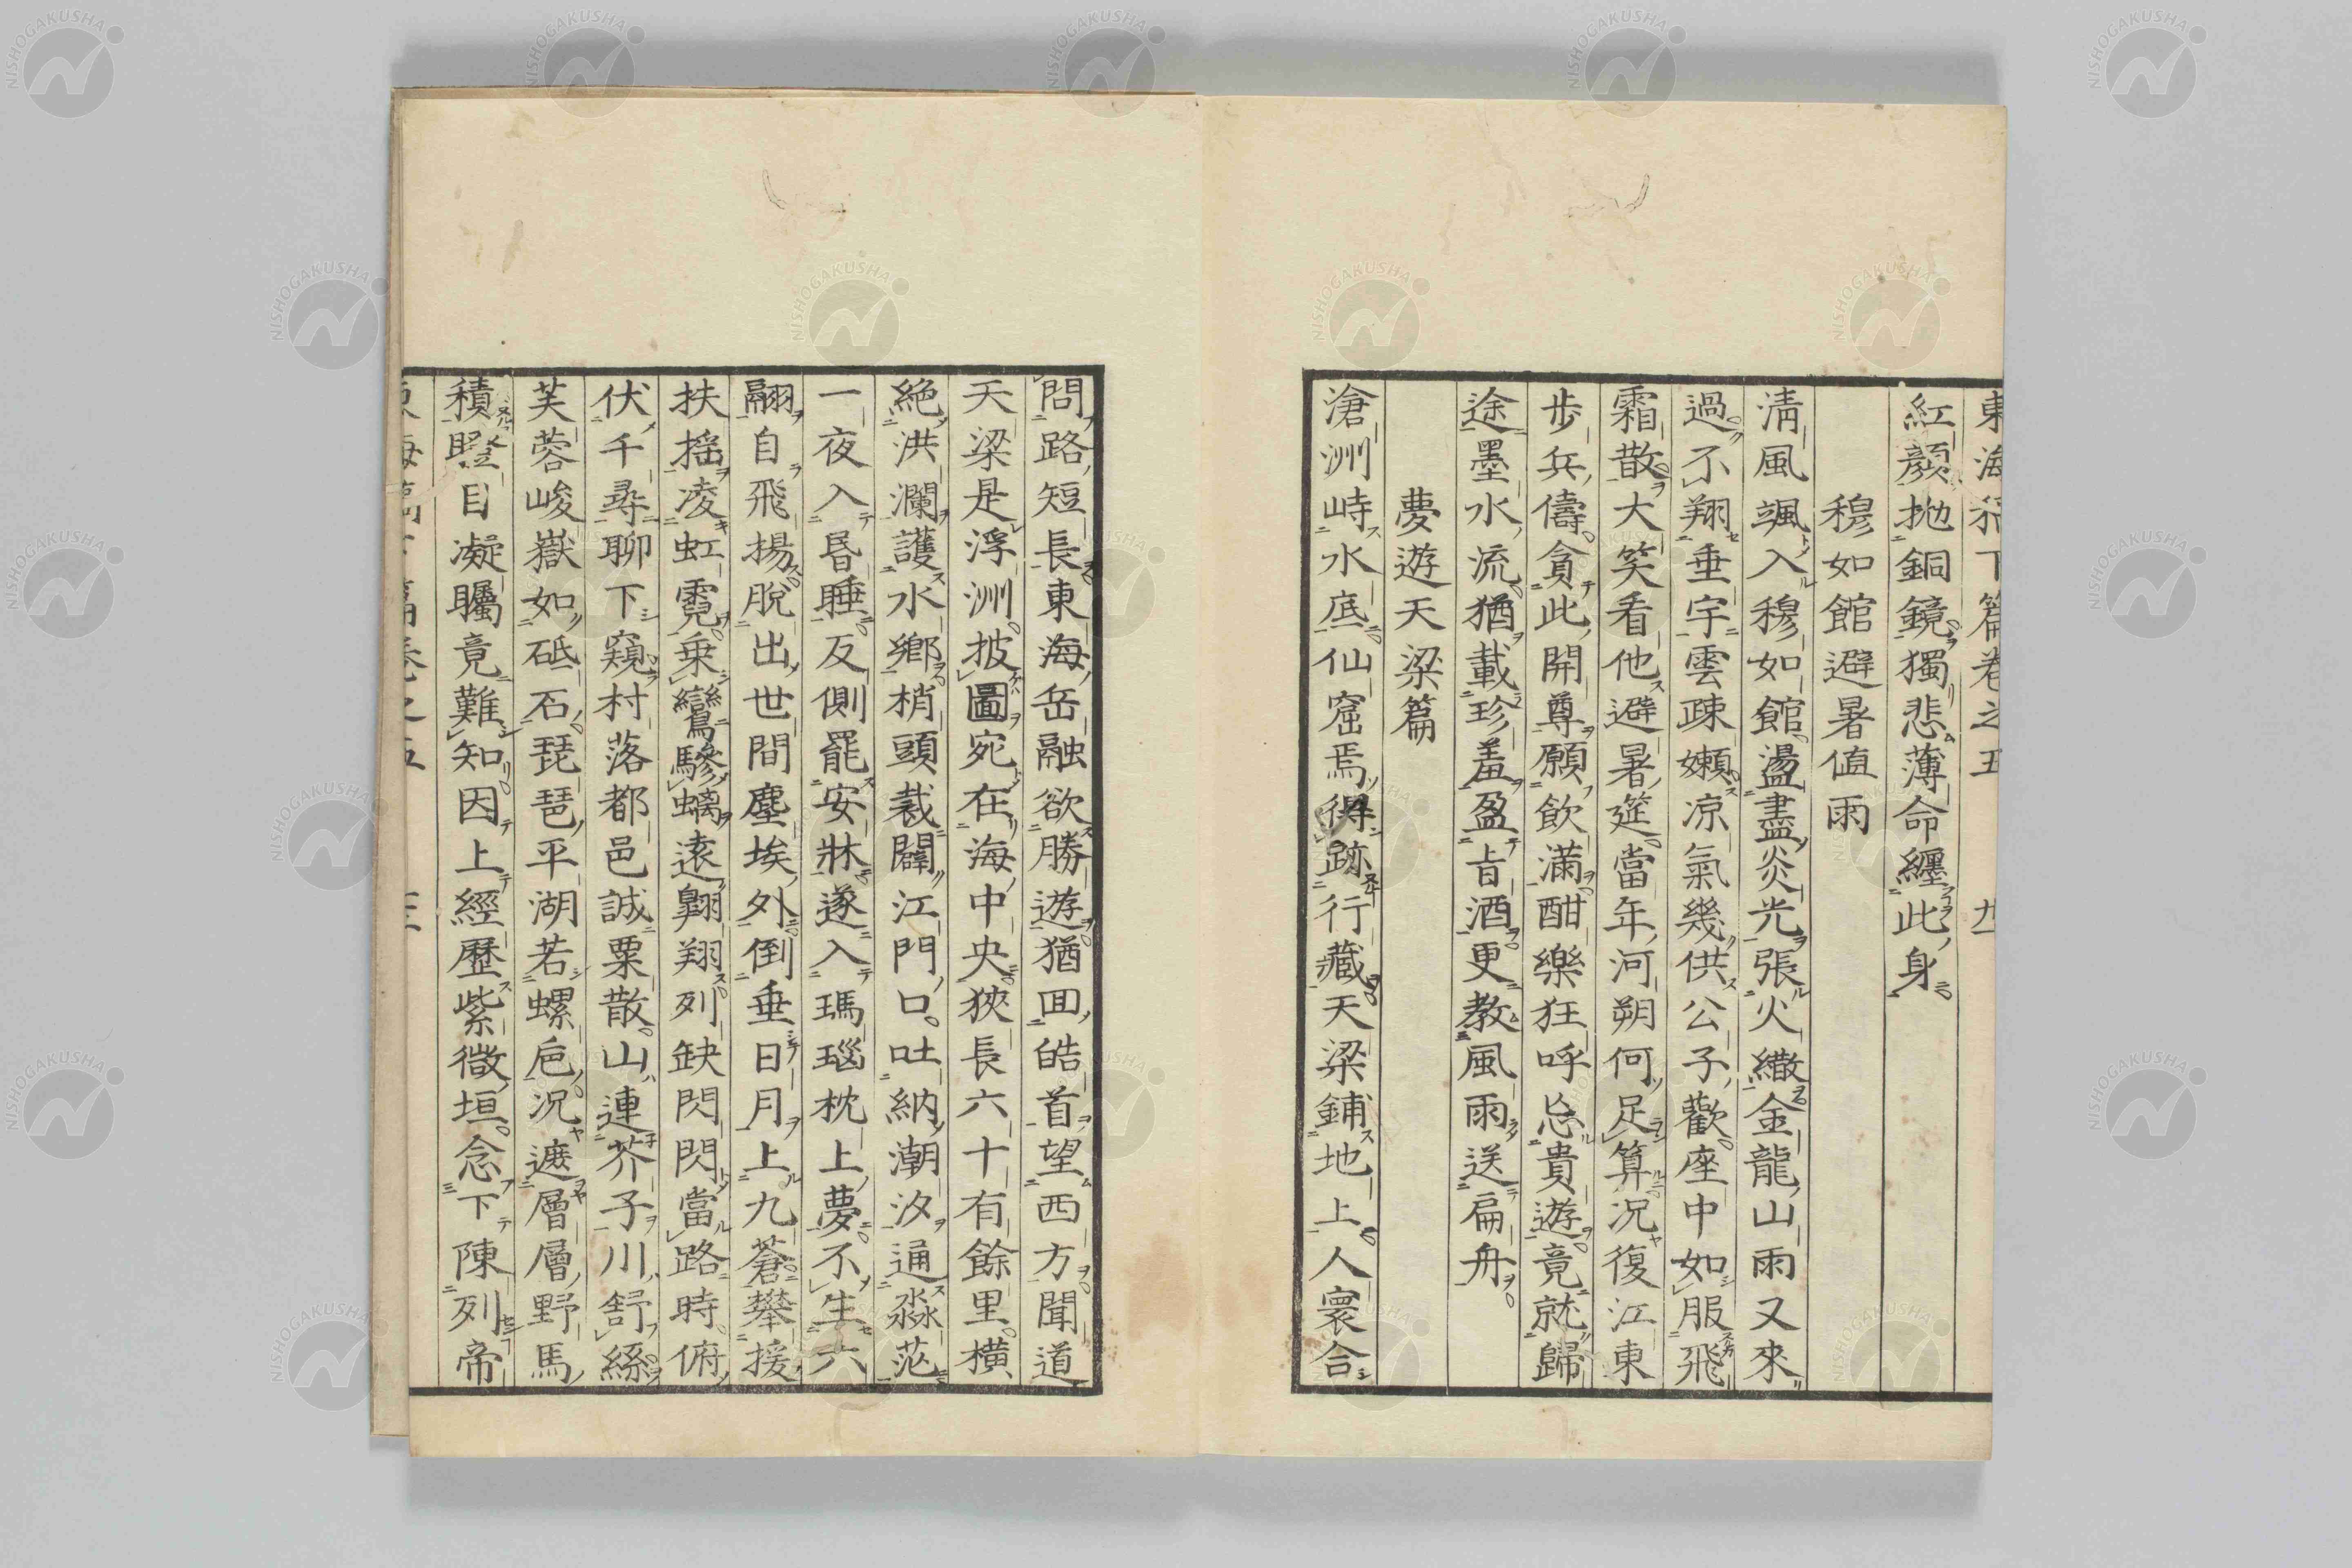 紅顏抛銅鏡獨悲薄命纏此身
穆如館避暑値雨
淸風颯入穆如館盪盡炎光張火繖金龍山雨又來
過不翔垂宇雲疎嬾凉氣幾供公子歡座中如服飛
霜散大笑看他避暑筵當年河朔何足算況復江東
步兵儔貪此開尊願飮滿酣樂狂呼忘貴遊竟就歸
途墨水流猶載珍羞盈旨酒更教風雨送扁舟
夢遊天梁篇
滄洲峙水底仙窟焉得跡行藏天梁鋪地上人寰合
問路短長東海岳融欲勝遊猶囬皓首望西方聞道
天梁是浮洲披圖宛在海中央狹長六十有餘里橫
絶洪瀾護水鄉梢頭裁闢江門口吐納潮汐通淼茫
一夜入昏睡反側罷安牀遂入瑪瑙枕上夢不生六
翮自飛揚脫出世間塵埃外倒垂日月上九蒼攀援
扶搖凌虹霓乗鸞驂螭遠翺翔列缺閃閃當路時俯
伏千尋聊下窺村落都邑誠粟散山連芥子川舒絲
芙蓉峻嶽如砥石琵琶平湖若螺巵況遮層層野馬
積瞪目凝矚竟難知因上經歷紫微垣念下陳列帝